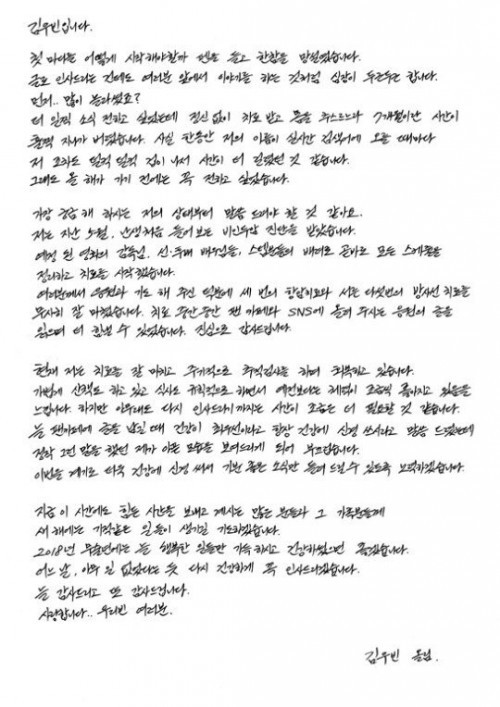 김우빈입니다.
첫 마디는 어떻게 시작해야할까 펜을 들고 한참을 망설였습니다.
글로 인사드리는 건데도 여러분 앞에서 이야기를 하는 것처럼 심장이 두근두근 합니다.
먼저.. 많이 놀라셨죠?
더 일찍 소식 전하고 싶었는데 정신 없이 치료 받고 몸을 추스르느라 7개월이란 시간이
훌쩍 지나가 버렸습니다. 사실 한동안 저의 이름이 실시간 검색어에 오를 때마다
저 조차도 덜컥 덜컥 겁이 나서 시간이 더 걸렸던 것 같습니다.
그래도 올 해가 가기 전에는 꼭 전하고 싶었습니다.
가장 궁금해 하시는 저의 상태부터 말씀 드려야 할 것 같아요.
저는 지난 5월, 난생처음 들어보는 비인두암 진단을 받았습니다.
예정 된 영화의 감독님, 선·후배 배우님들, 스텝분들의 배려로 곧바로 모든 스케줄을
정리하고 치료를 시작했습니다.
여러분께서 응원과 기도 해 주신 덕분에 세 번의 항암치료와 서른 다섯번의 방사선 치료를
무사히 잘 마쳤습니다. 치료 중간중간 팬 카페와 SNS에 올려 주시는 응원의 글을
읽으며 더 힘낼 수 있었습니다. 진심으로 감사드립니다.
현재 저는 치료를 잘 마치고 주기적으로 추적검사를 하며 회복하고 있습니다.
가볍게 산책도 하고 있고 식사도 규칙적으로 하면서 예전보다는 체력이 조금씩 좋아지고 있음을
느낍니다. 하지만 아무래도 다시 인사드리기까지는 시간이 조금은 더 필요할 것 같습니다.
늘 팬카페에 글을 남길 때 건강이 최우선이라고 항상 건강에 신경 쓰시라고 말씀 드렸는데
정작 그런 말을 했던 제가 아픈 모습을 보여드리게 되어 부끄럽습니다.
이번을 계기로 더욱 건강에 신경 써서 기분 좋은 소식만 들려 드릴 수 있도록 노력하겠습니다.
지금 이 시간에도 힘든 시간을 보내고 계시는 많은 분들과 그 가족분들께
새 해에는 기적같은 일들이 생기길 기도하겠습니다.
2018년 무술년에는 늘 행복한 일들만 가득 하시고 건강하셨으면 좋겠습니다.
어느 날, 아무 일 없었다는 듯 다시 건강하게 꼭 인사드리겠습니다.
늘 감사드리고 또 감사드립니다.
사랑합니다.. 우리빈 여러분.
김우빈 올림.